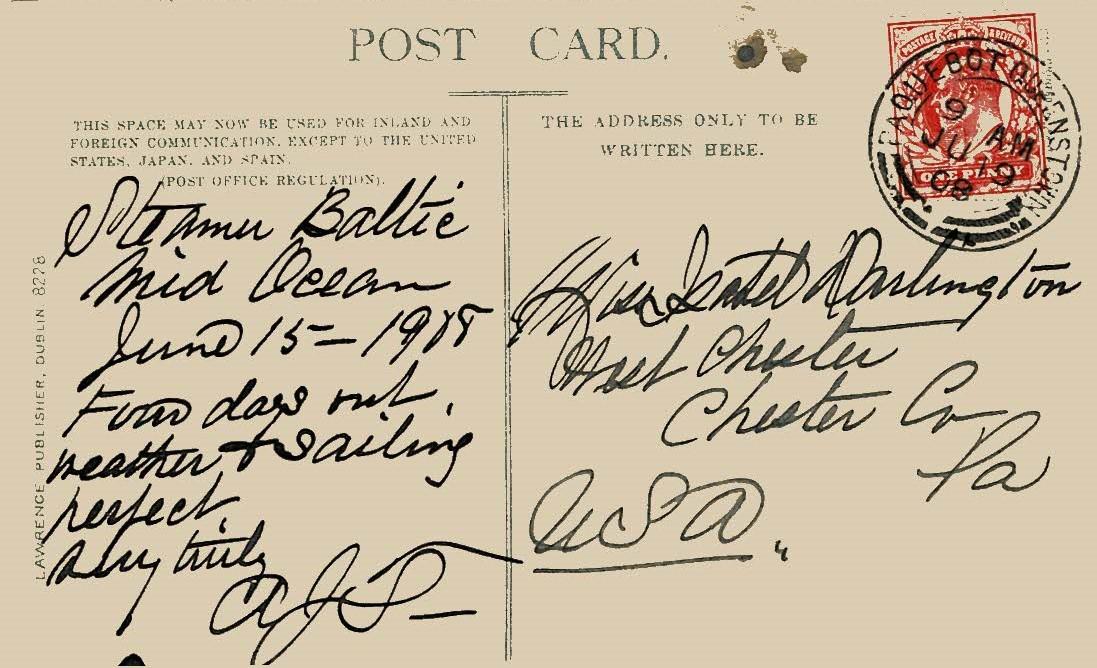 POST CARD.
THIS SPACE MAY NOW BE USED FOR INLAND AND
FOREIGN COMMUNICATION, EXCEPT TO THE UNITED
STATES, JAPAN, AND SPAIN.
(POST OFFICE REGULATION).
Steamer Baltic
Mid Ocean
June 15 - 1908
Four days out,
weather & sailing
perfect.
Very truly
LAWRENCE PUBLISHER, DUBLIN 8278
THE ADDRESS ONLY TO BE
WRITTEN HERE.
POSTAGE & REVENUE
ONE PENNY
PAQUEBOT QUEENSTOWN
9 AM
JU 19
08
Miss Isabel Darlington
West Chester
Chester Co
Pa
USA